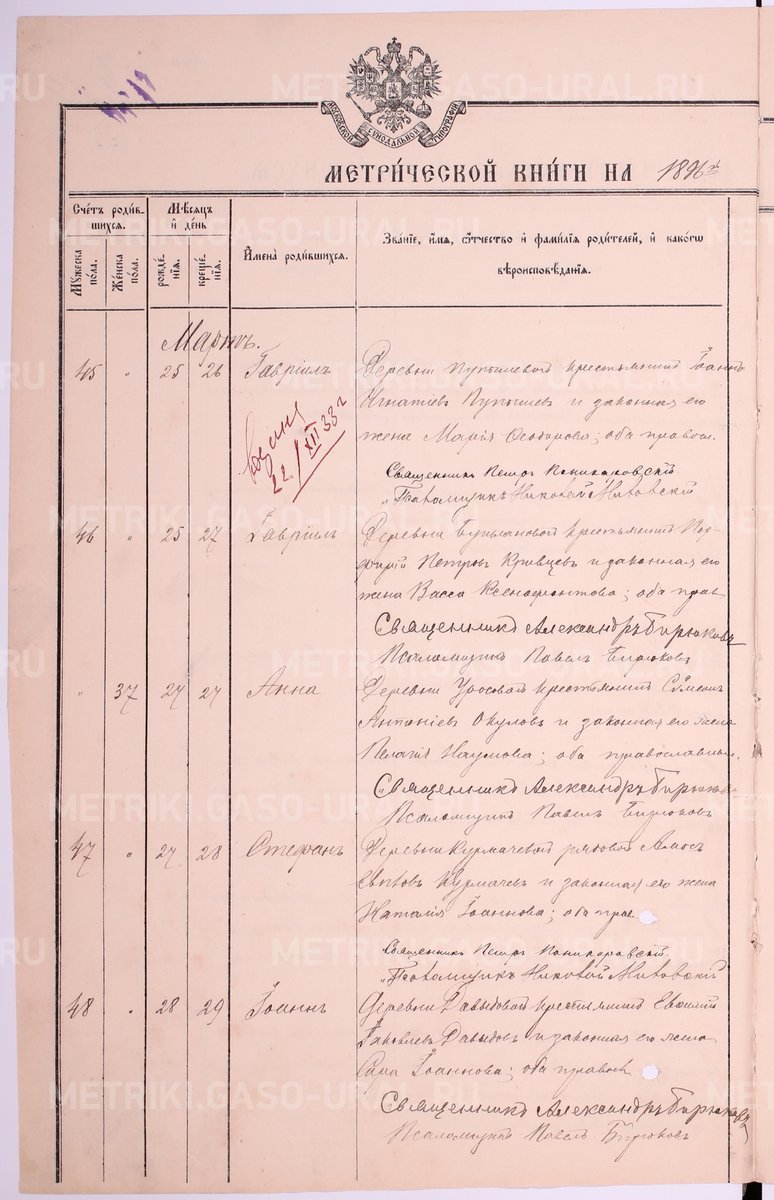 МОСКОВСКОЙ СѴНОДАЛЬНОЙ ТИПОГРАФІИ
МЕТРИ́ЧЕСКОЙ КНИ́ГИ НА 1896й
Сче́тъ роди́в-
шихся.
Мѣ́сяцъ
и҆ де́нь
Му́жеска по́ла.
Же́нска по́ла.
рожде́-
нїѧ.
креще́-
нїѧ.
И҆мена̀ роди́вшихсѧ.
Зва́нїе, и҆́мѧ, ѻ҆́тчество и҆ фами́лїѧ роди́телей, и҆ како́гѡ
вѣроисповѣ́данїѧ.
Мартъ.
45 " 25 26 Гавріилъ Деревни Пупышевой крестьянинъ Іоаннъ
Игнатіевъ Пупышевъ и законная его
жена Марія Ѳеодорова; оба правос.
22/XII 38 г
Священникъ Петръ Пономаровскій
Псаломщикъ Николай
46 " 25 27 Гавріилъ Деревни крестьянинъ Пор-
фирій Петровъ Кривцевъ и законная его
жена Васса Ксенофонтова; оба прав
Священникъ Александръ Бирюковъ
Псаломщикъ Павелъ Бирюковъ
" 37 27 27 Анна Деревни Уросовой крестьянинъ Сѵмеонъ
Антоніевъ Окуловъ и законная его жена
Пелагія Наумова; оба православные.
Священникъ Александръ Бирюковъ
Псаломщикъ Павелъ Бирюковъ
47 " 27 28 Стефанъ Деревни Курмачевой рядовой Амосъ
Курмачевъ и законная его жена
Наталія Іоаннова; оба прав
Священникъ Петръ Пономаровскій
Псаломщикъ Николай
48 " 28 29 Іоаннъ Деревни Давыдовой крестьянинъ Евѳимій
Іаковлевъ Давыдовъ и законная его жена
Сара Іоаннова; оба правосл
Священникъ Александръ Бирюковъ
Псаломщикъ Павелъ Бирюковъ
METRIKI.GASO-URAL.RU